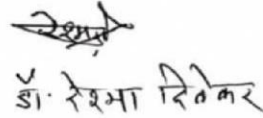 डॉ. रेश्मा दिवेकर